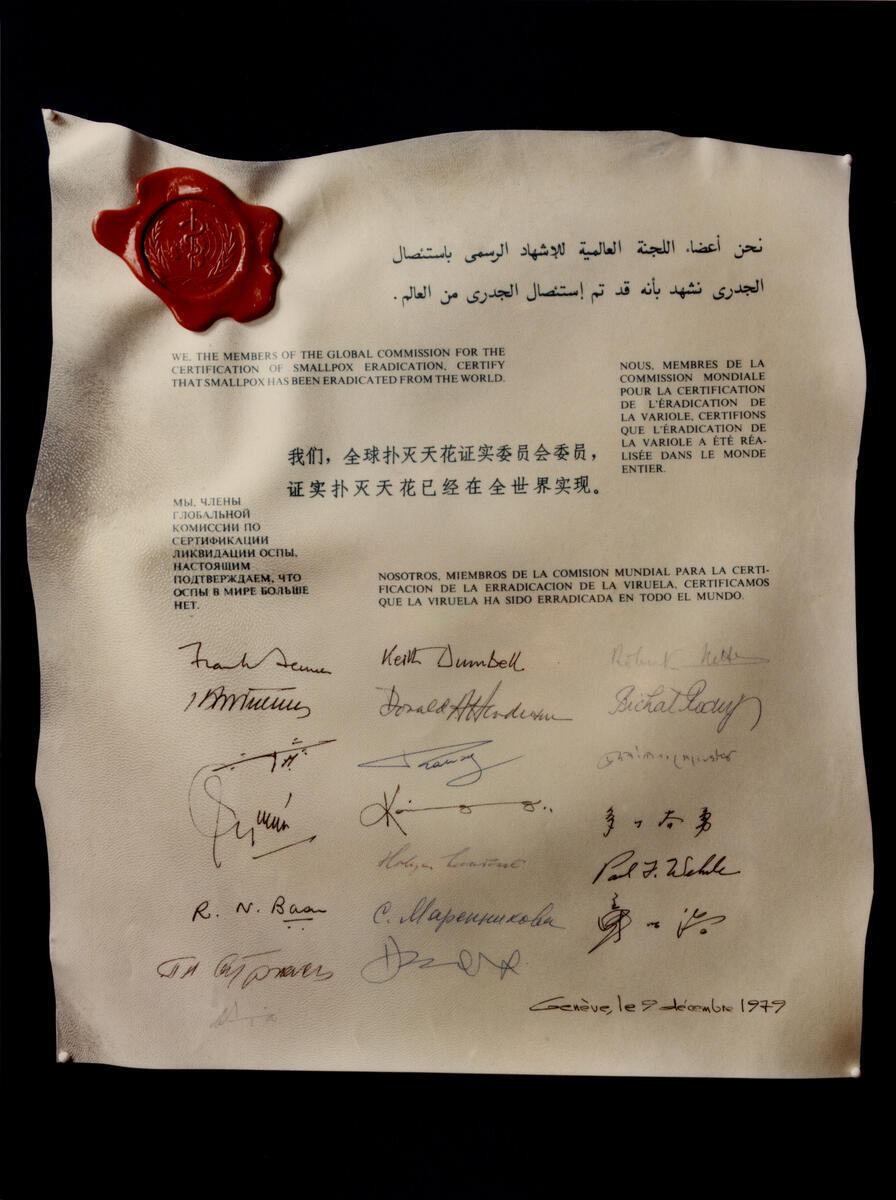 نحن أعضاء اللجنة العالمية للإشهاد الرسمى باستئصال
الجدرى نشهد بأنه قد تم إستئصال الجدرى من العالم.
WE, THE MEMBERS OF THE GLOBAL COMMISSION FOR THE
CERTIFICATION OF SMALLPOX ERADICATION, CERTIFY
THAT SMALLPOX HAS BEEN ERADICATED FROM THE WORLD.
NOUS, MEMBRES DE LA
COMMISSION MONDIALE
POUR LA CERTIFICATION
DE L'ÉRADICATION DE
LA VARIOLE, CERTIFIONS
QUE L'ÉRADICATION DE
LA VARIOLE A ÉTÉ RÉA-
LISÉE DANS LE MONDE
ENTIER.
我们，全球扑灭天花证实委员会委员，
证实扑灭天花已经在全世界实现。
МЫ, ЧЛЕНЫ
ГЛОБАЛЬНОЙ
КОМИССИИ ПО
СЕРТИФИКАЦИИ
ЛИКВИДАЦИИ ОСПЫ,
НАСТОЯЩИМ
ПОДТВЕРЖДАЕМ, ЧТО
ОСПЫ В МИРЕ БОЛЬШЕ
НЕТ.
NOSOTROS, MIEMBROS DE LA COMISION MUNDIAL PARA LA CERTI-
FICACION DE LA ERRADICACION DE LA VIRUELA, CERTIFICAMOS
QUE LA VIRUELA HA SIDO ERRADICADA EN TODO EL MUNDO.
Frank Fenner
Keith Dumbell
Robert Netter
Donald A Henderson
Paul F. Wehrle
R. N. Basu
С. Маренникова
Genève, le 9 décembre 1979